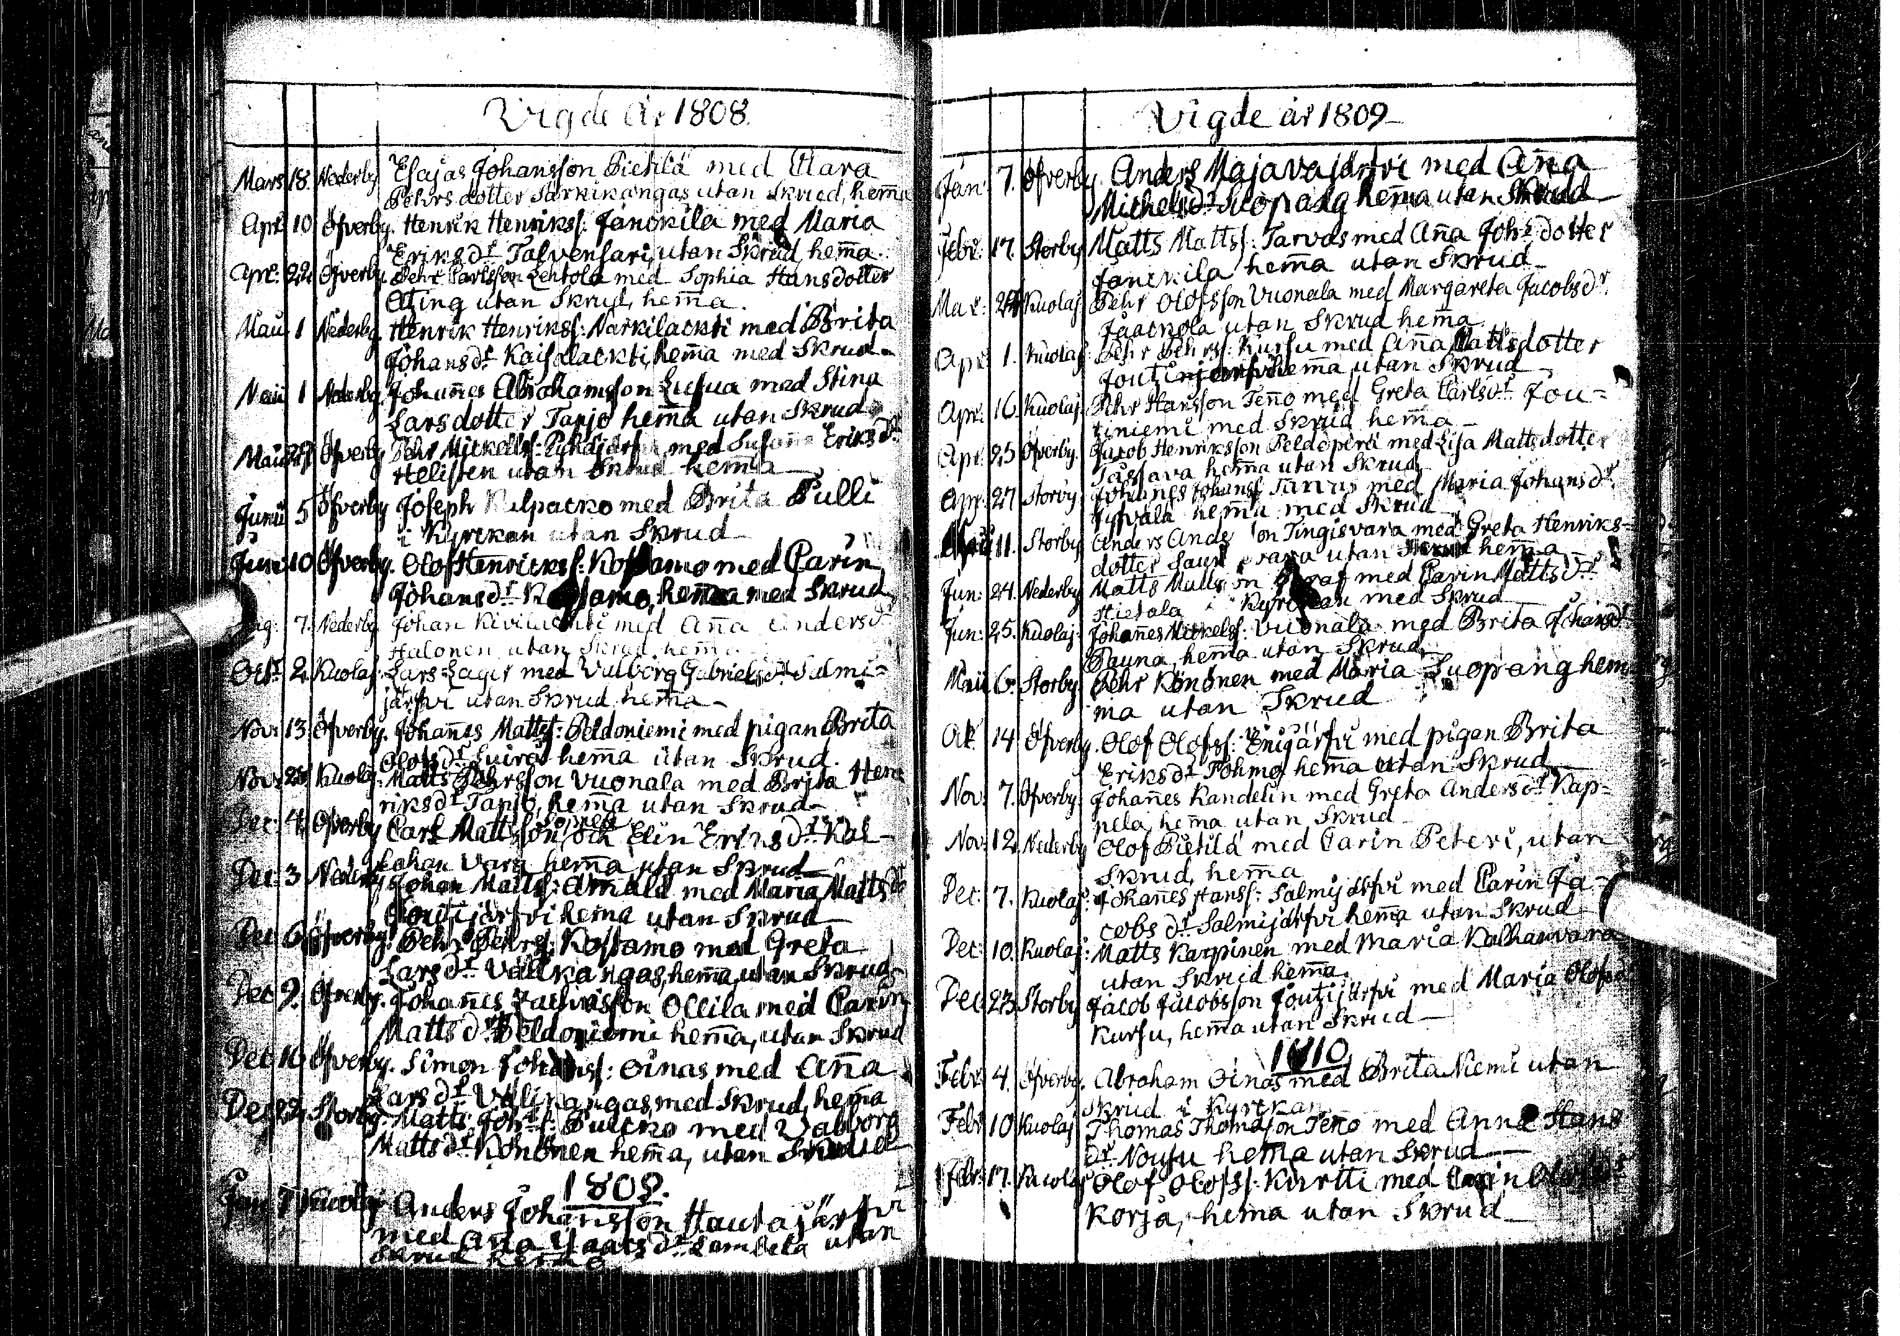 Vigde år 1808.
Mars 18. Nederby Esajas Johansson Pietilä med Clara
Pehrsdotter Särkikangas utan Skrud, hem̄a
Apr: 10 Öfverby. Henrik Henrikss: Janckila med Maria
Eriksdr Talvensari, utan Skrud, hem̄a.
Apr: 22. Öfverby. Pehr Carlsson Lehtola med Sophia Hansdotter
utan Skrud, hem̄a.
Maii 1 Nederby Henrik Henrikss: Närkilackti med Brita
Johansdr hem̄a med Skrud
Maii 1 Nederby Johan̄es Abrahamsson Lusua med Stina
Larsdotter Tapjo hem̄a utan Skrud
Maii Öfverby Pehr Mickelss: Pyhäjärfvi med Susan̄a Eriksdr
Helisten utan Skrud hem̄a
Junii 5 Öfverby Joseph Kulpacko med Brita Pulli
i Kyrckan utan Skrud
Juni 10 Öfverby. Olof Henrickss: Kossamo med Carin
Johansdr hem̄a med Skrud
7. Nederby Johan med An̄a Andersdr
Halonen utan Skrud hem̄a
Octr 2. Kuolaj. Lars Lagit med Valborg Gabrielsdr Salmi-
järfvi utan Skrud, hem̄a
Nov: 13. Öfverby. Johan̄es Mattss: Peldoniemi med pigan Brita
Olofsdr Luiro hem̄a utan Skrud.
Nov: Kuolaj. Matts Pehrsson Vuonala med Brita Hen-
riksdr Tapjo, hem̄a utan Skrud
Dec: 4. Öfverby Carl Mattsson och Elin Eriksdr Kal-
hem̄a utan Skrud
Dec: 3 Nederby Johan Mattss: Arnäld med Maria Mattsdr
Joutzijärfvi hem̄a utan Skrud
Dec 6 Öfverby. Pehr Pehrss: Kossamo med Greta
Larsdr Vällkangas, hem̄a, utan Skrud
Dec 9. Öfverby. Johan̄es Ollila med Carin
Mattsdr Peldoniemi hem̄a, utan Skrud
Dec 16 Öfverby. Simon Johanss: Oinas med An̄a
Larsdr Vällkangas med Skrud, hem̄a
Dec 22. Storby. Matts Johss: Pulcko med Valborg
Mattsdr Könönen hem̄a, utan Skrud
1809.
Jan 7 Kuolaj Anders Johansson Hautajärfvi
med An̄a Isaacsdr Lambela utan
Skrud hem̄a
Vigde år 1809
Jan: 7. Öfverby. Anders Majavajärfvi med An̄a
Michelsdr Suopang hem̄a utan Skrud
Febr: 17. Storby Matts Mattss: Tarvas med An̄a Johsdotter
Janckila hem̄a utan Skrud
Mar: Kuolaj Pehr Olofsson Vuonala med Margareta Jacobsdr
Jaackola utan Skrud hem̄a
Apr: 1. Kuolaj: Pehr Pehrss: Kursu med An̄a Mattsdotter
hem̄a utan Skrud
Apr: 16. Kuolaj. Pehr Hansson Ten̄o med Greta Carlsdr Jou-
tiniemi med Skrud hem̄a
Apr: 25 Öfverby. Jacob Henriksson Peldopirti med Lisa Mattsdotter
hem̄a utan Skrud
Apr: 27 Storby Johan̄es Johanss Tarvas med Maria Johansdr
hem̄a med Skrud
11. Storby Anders Tingisvara med Greta Henriks-
dotter utan Skrud hem̄a
Jun: 24. Nederby Matts Mattsson med Carin Mattsdr
Hietala i Kyrckan med Skrud
Jun: 25. Kuolaj: Johan̄es Mickelss: Vuonala med Brita Johansdr
Pauna, hem̄a utan Skrud
Maii 6. Storby Pehr Könönen med Maria Suopang hem̄
ma utan Skrud
Oct: 14 Öfverby. Olof Olofss: Enijärfvi med pigan Brita
Eriksdr Pohmo hem̄a utan Skrud
Nov: 7. Öfverby. Johan̄es Kandelin med Greta Andersdr Kap-
pela, hem̄a utan Skrud
Nov: 12. Nederby Olof Pietilä med Carin Peteri, utan
Skrud, hem̄a
Dec: 7. Kuolaj: Johan̄es Hanss: Salmijärfvi med Carin Ja-
cobsdr Salmijärfvi hem̄a utan Skrud
Dec: 10. Kuolaj: Matts Karpinen med Maria Kalhanvara
utan Skrud hem̄a.
Dec: 23. Storby Jacob Jacobsson Joutzijärfvi med Maria Olofsdr
Kursu, hem̄a utan Skrud
1810
Febr: 4. Öfverby. Abraham Oinas med Brita Niemi utan
Skrud i Kyrckan
Febr: 10 Kuolaj Thomas Thomasson Ten̄o med Anna Hans
dr Nousu hem̄a utan Skrud
Febr: 17. Kuolaj Olof Olofss: Kurtti med Carin Olofsdr
Korja, hem̄a utan Skrud